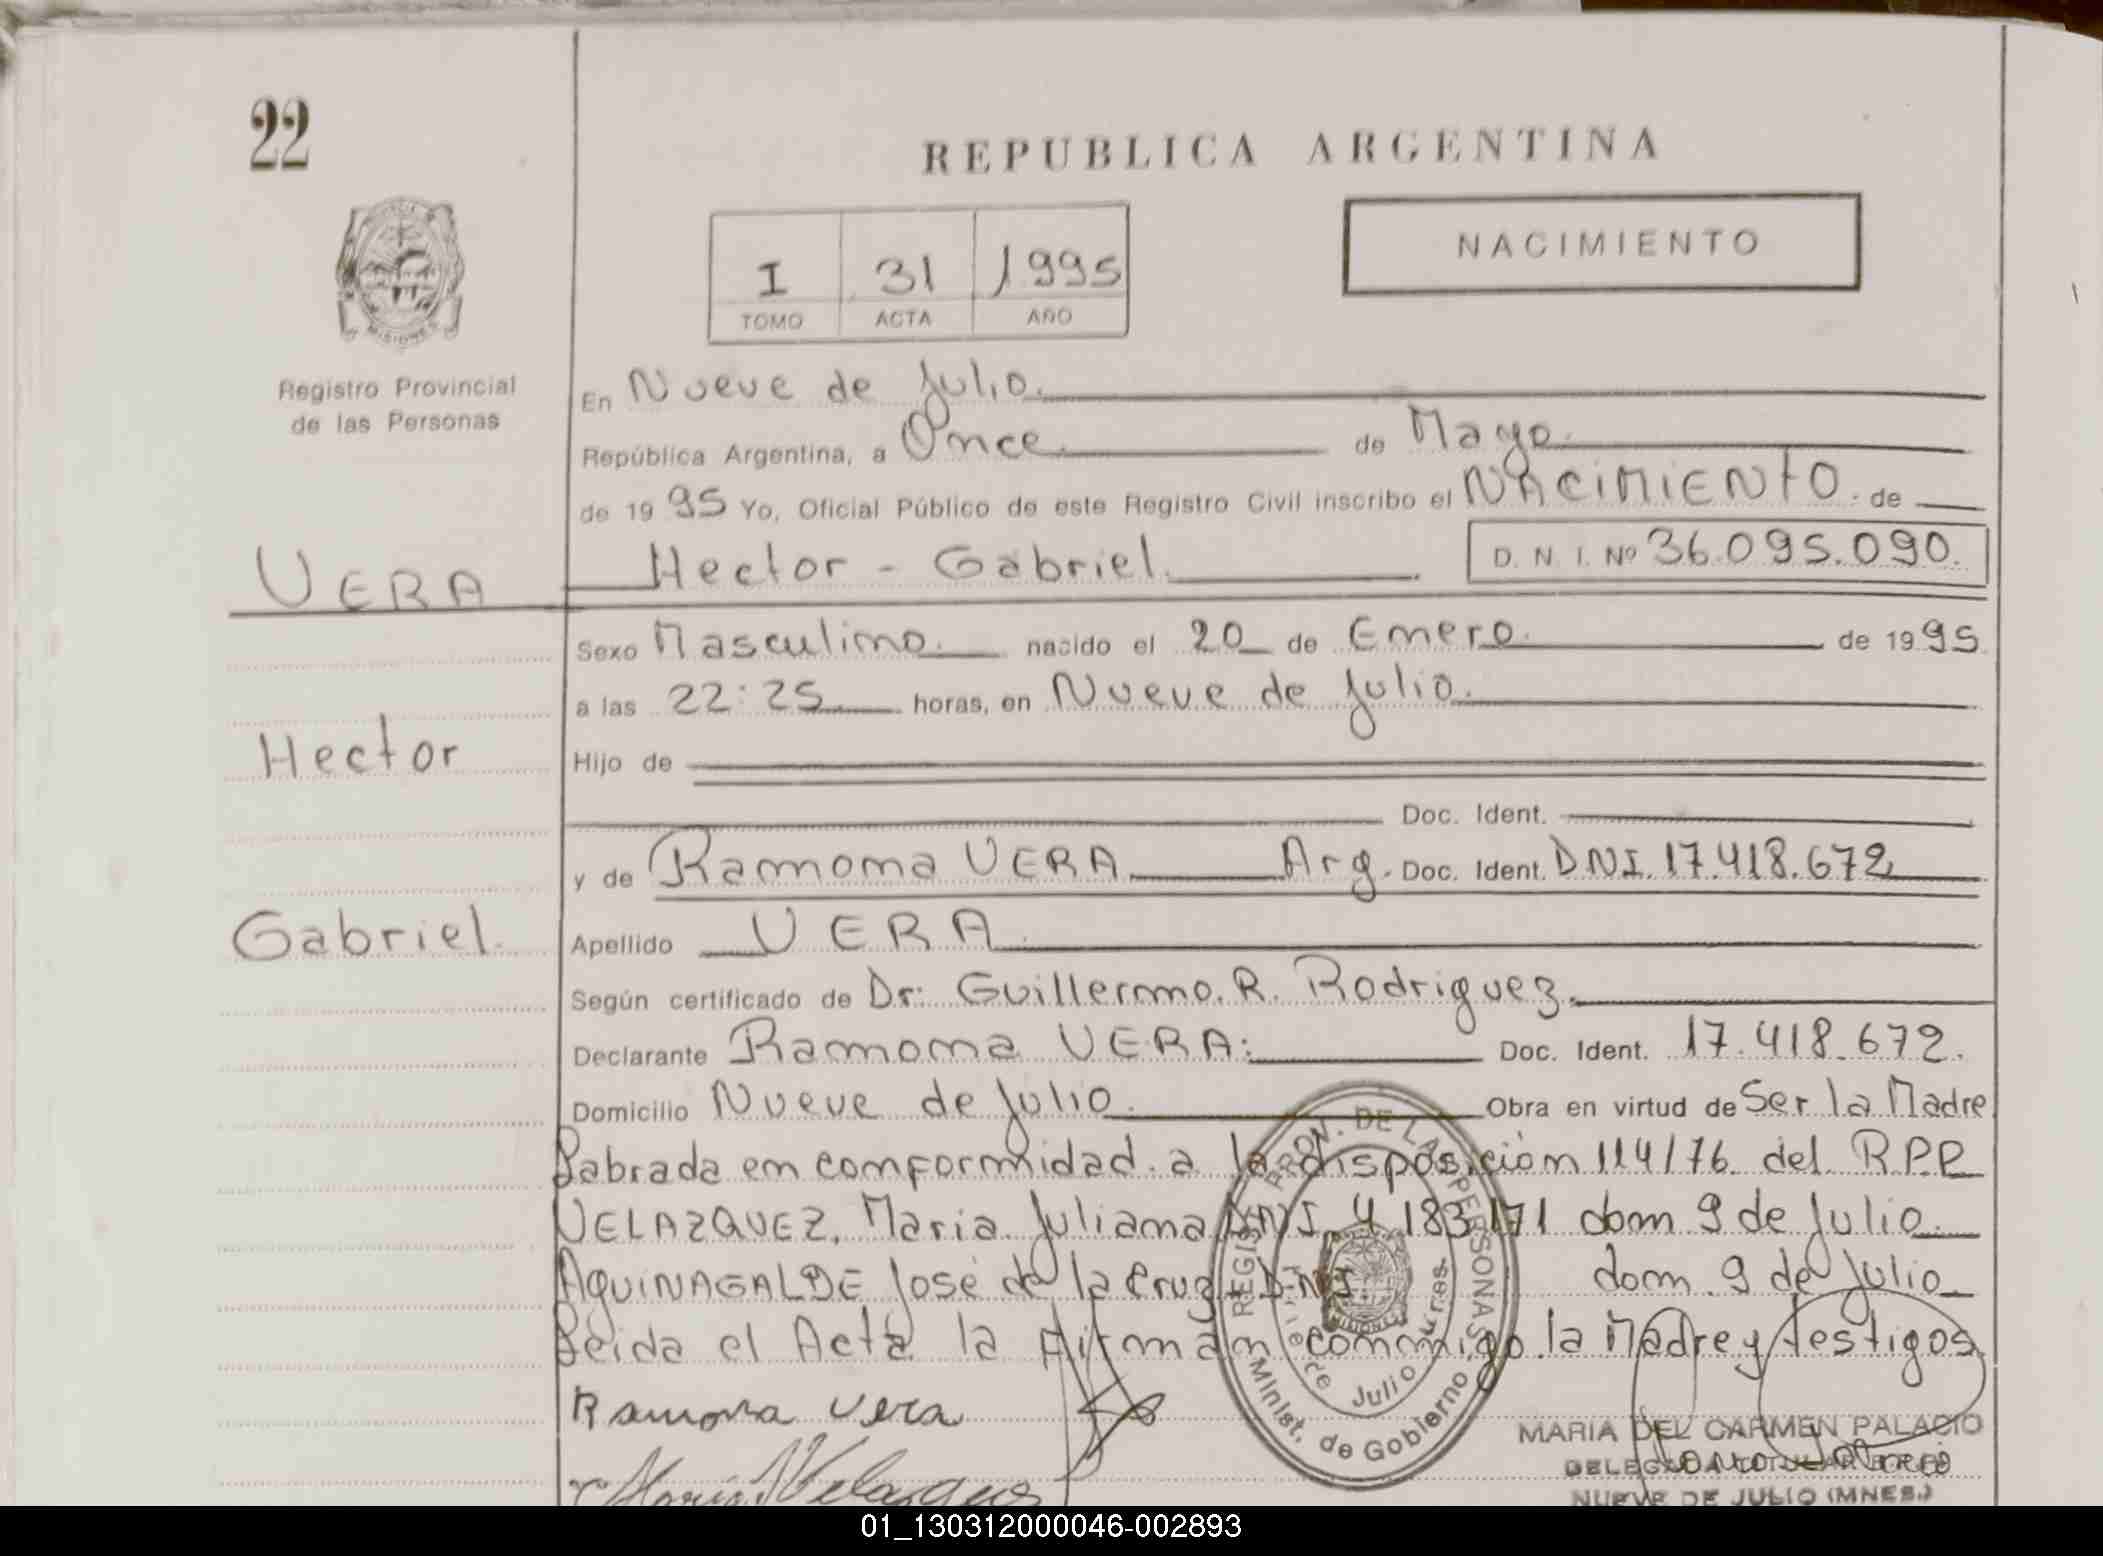 22
REPUBLICA ARGENTINA
NACIMIENTO
I 31 1995
TOMO ACTA AÑO
MISIONES
Registro Provincial
de las Personas
En Nueve de Julio.
República Argentina, a Once de Mayo.
de 1995 Yo, Oficial Público de este Registro Civil inscribo el NACIMIENTO. de
Hector - Gabriel. D. N. I. Nº 36.095.090.
VERA
Hector
Gabriel.
Sexo Masculino. nacido el 20 de Enero. de 1995
a las 22:25 horas, en Nueve de Julio.
Hijo de
Doc. Ident.
y de Ramona VERA Arg. Doc. Ident. DNI. 17.418.672
Apellido VERA.
Según certificado de Dr. Guillermo. R. Rodriguez.
Declarante Ramona VERA: Doc. Ident. 17.418.672.
Domicilio Nueve de Julio. Obra en virtud de Ser la Madre
Labrada en conformidad a la disposición 114/76 del R.P.P
VELAZQUEZ, Maria Juliana DNI 4 183 171 dom 9 de Julio.
AQUINAGALDE José de la Cruz DNI dom. 9 de Julio
Leida el Acta la firman conmigo la Madre y testigos
Ramona Vera
Maria Velazquez
REGIST. PROV. DE LAS PERSONAS
Minist. de Gobierno
Julio
MARIA DEL CARMEN PALACIO
DELEGADA TITULAR
NUEVE DE JULIO (MNES.)
01_130312000046-002893